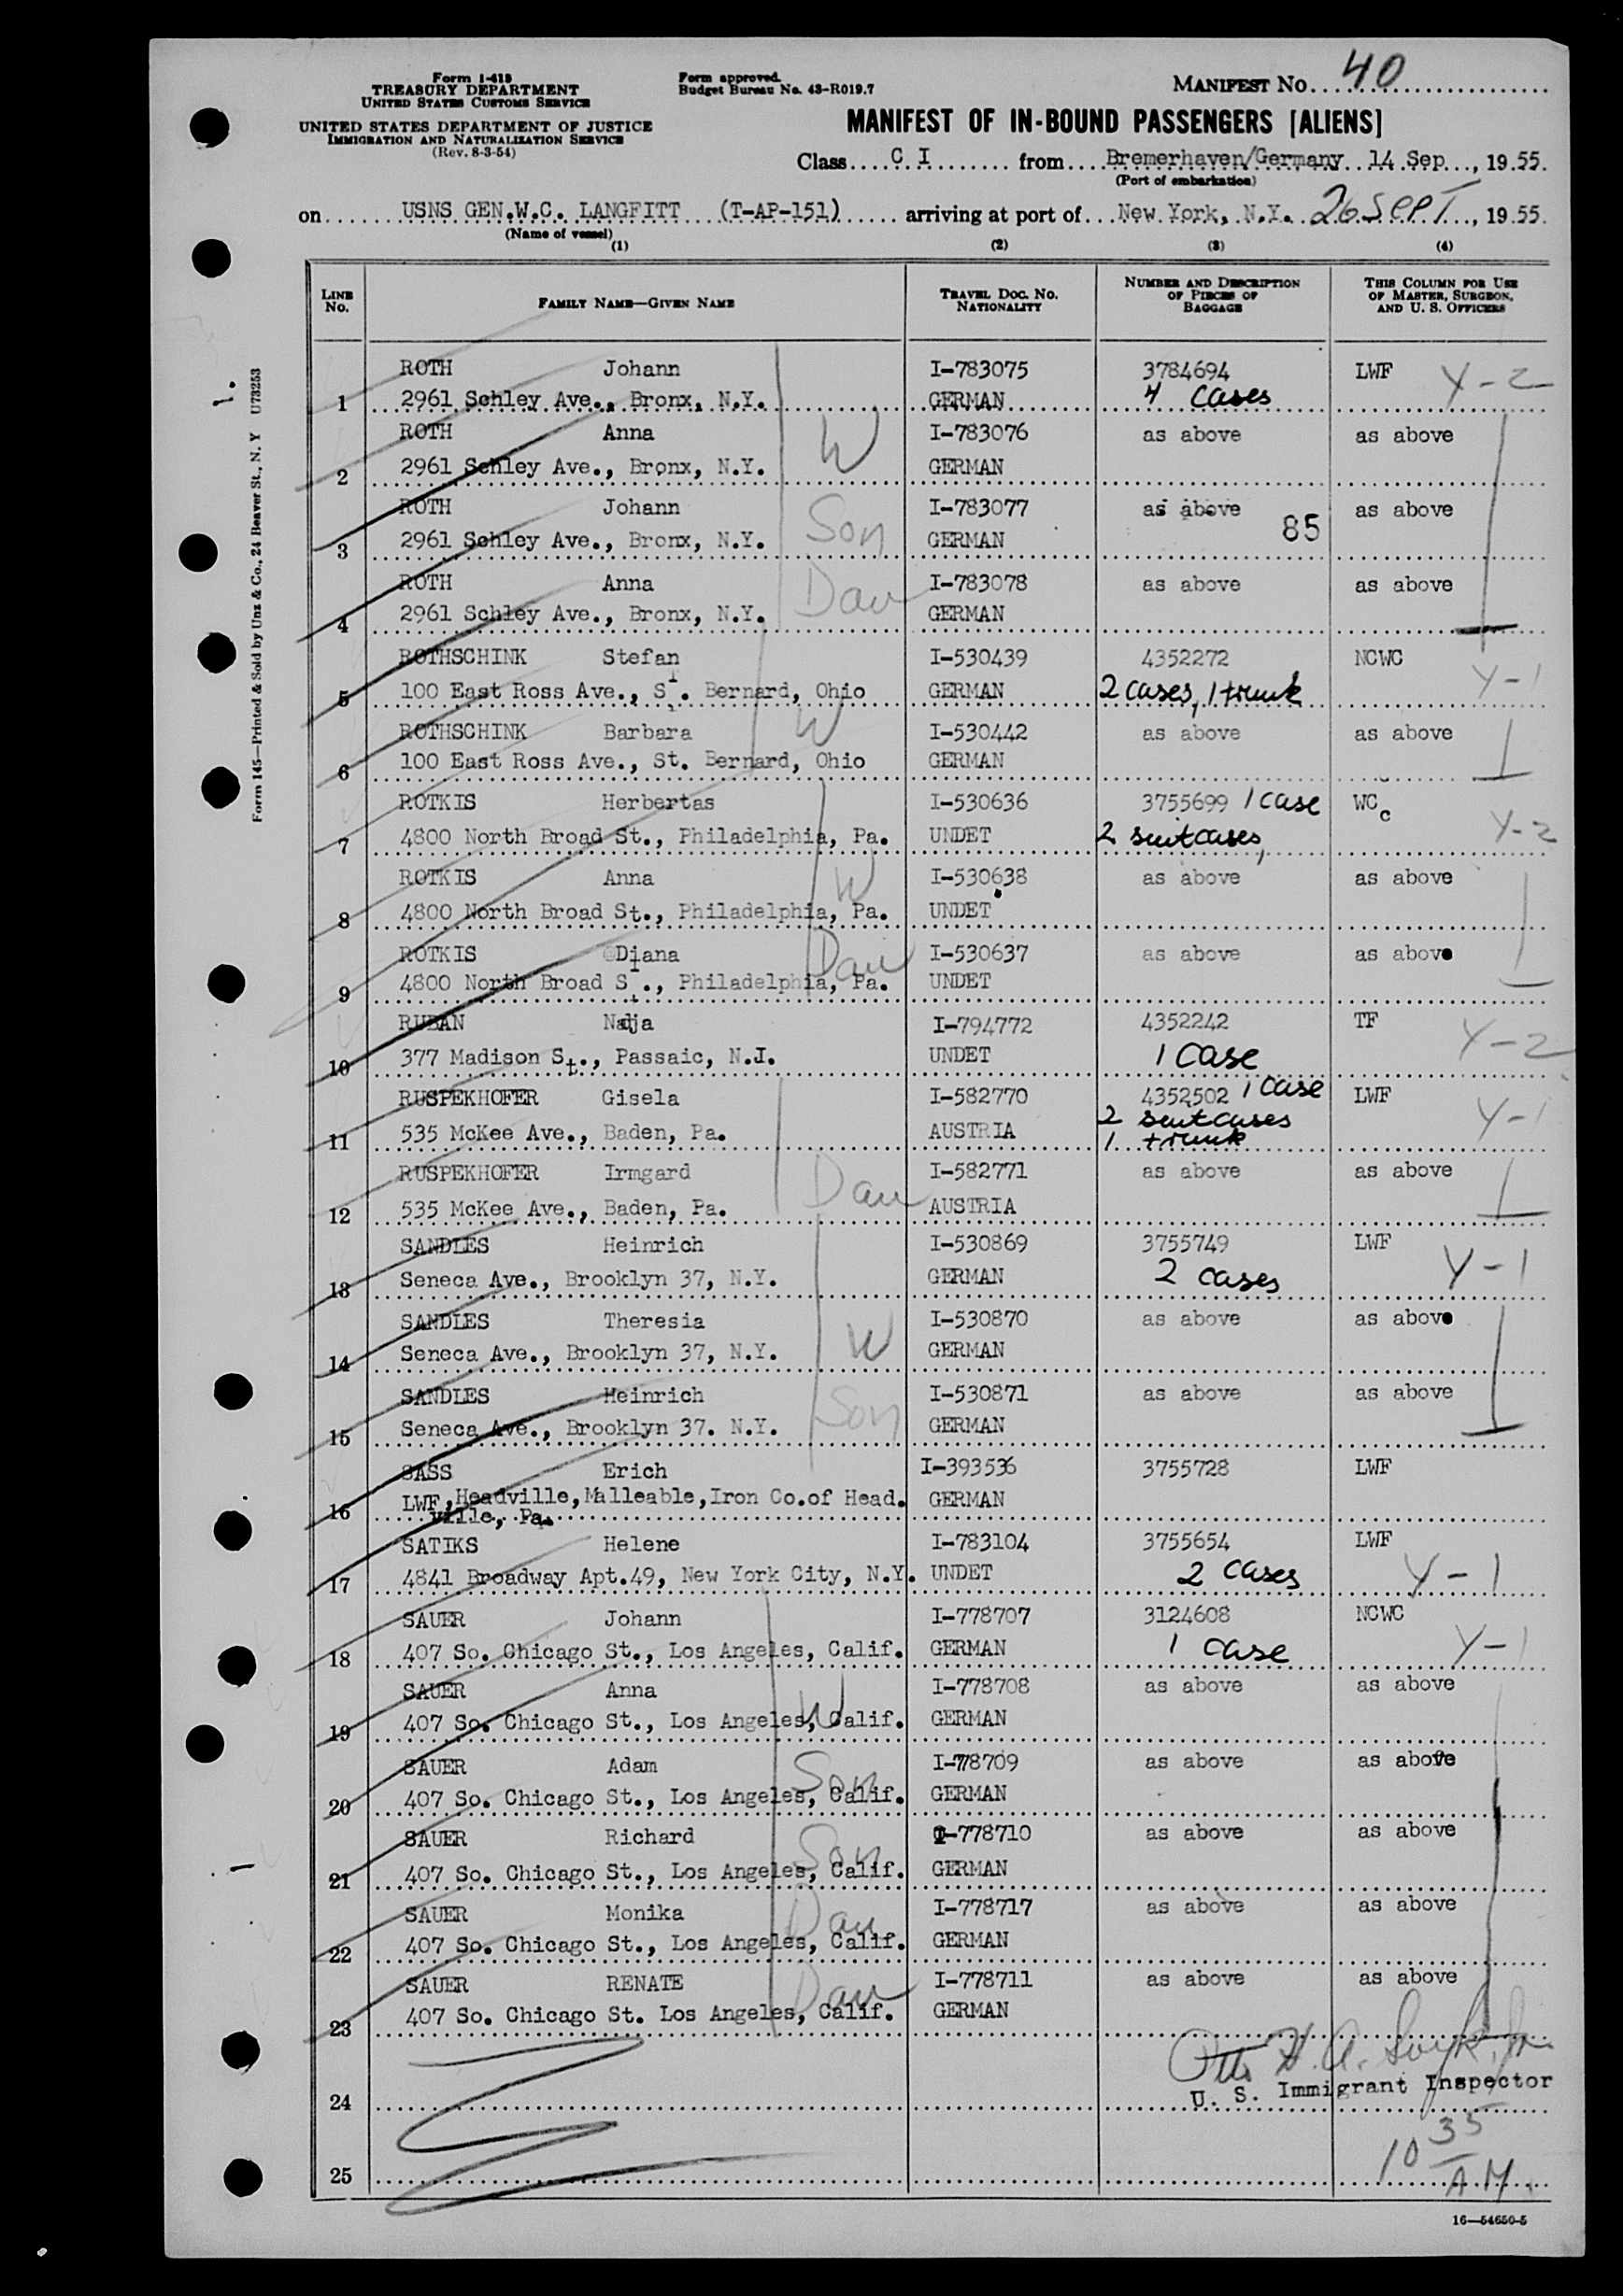 Form I-418
TREASURY DEPARTMENT
UNITED STATES CUSTOMS SERVICE
UNITED STATES DEPARTMENT OF JUSTICE
IMMIGRATION AND NATURALIZATION SERVICE
(Rev. 8-3-54)
Form approved.
Budget Bureau No. 43-R019.7
MANIFEST NO. 40
MANIFEST OF IN-BOUND PASSENGERS [ALIENS]
Class C I from Bremerhaven/Germany 14 Sep, 1955.
(Port of embarkation)
on USNS GEN.W.C. LANGFITT (T-AP-151) arriving at port of New York, N.Y. 26 SEPT, 1955.
(Name of vessel)
(1) (2) (3) (4)
LINE No. FAMILY NAME—GIVEN NAME TRAVEL DOC. NO. NATIONALITY NUMBER AND DESCRIPTION OF PIECES OF BAGGAGE THIS COLUMN FOR USE OF MASTER, SURGEON, AND U. S. OFFICERS
ROTH Johann I-783075 3784694 LWF Y-2
1 2961 Schley Ave., Bronx, N.Y. GERMAN 4 cases
ROTH Anna W I-783076 as above as above
2 2961 Schley Ave., Bronx, N.Y. GERMAN
ROTH Johann Son I-783077 as above as above
3 2961 Schley Ave., Bronx, N.Y. GERMAN 85
ROTH Anna Dau I-783078 as above as above
4 2961 Schley Ave., Bronx, N.Y. GERMAN
ROTHSCHINK Stefan I-530439 4352272 NCWC Y-1
5 100 East Ross Ave., St. Bernard, Ohio GERMAN 2 cases, 1 trunk
ROTHSCHINK Barbara W I-530442 as above as above
6 100 East Ross Ave., St. Bernard, Ohio GERMAN
ROTKIS Herbertas I-530636 3755699 1 case WCc
7 4800 North Broad St., Philadelphia, Pa. UNDET 2 suitcases, Y-2
ROTKIS Anna W I-530638 as above as above
8 4800 North Broad St., Philadelphia, Pa. UNDET
ROTKIS Diana Dau I-530637 as above as above
9 4800 North Broad St., Philadelphia, Pa. UNDET
RUBAN Nadja I-794772 4352242 TF Y-2
10 377 Madison St., Passaic, N.J. UNDET 1 case
RUSPEKHOFER Gisela I-582770 4352502 1 case LWF Y-1
2 suitcases
11 535 McKee Ave., Baden, Pa. AUSTRIA 1 trunk
RUSPEKHOFER Irmgard Dau I-582771 as above as above
12 535 McKee Ave., Baden, Pa. AUSTRIA
SANDLES Heinrich I-530869 3755749 LWF Y-1
13 Seneca Ave., Brooklyn 37, N.Y. GERMAN 2 cases
SANDLES Theresia W I-530870 as above as above
14 Seneca Ave., Brooklyn 37, N.Y. GERMAN
SANDLES Heinrich Son I-530871 as above as above
15 Seneca Ave., Brooklyn 37. N.Y. GERMAN
SASS Erich I-393536 3755728 LWF
16 LWF,Headville,Malleable,Iron Co.of Head. GERMAN
ville, Pa.
SATIKS Helene I-783104 3755654 LWF
17 4841 Broadway Apt.49, New York City, N.Y. UNDET 2 cases Y-1
SAUER Johann I-778707 3124608 NCWC
18 407 So. Chicago St., Los Angeles, Calif. GERMAN 1 case Y-1
SAUER Anna W I-778708 as above as above
19 407 So. Chicago St., Los Angeles, Calif. GERMAN
SAUER Adam Son I-778709 as above as above
20 407 So. Chicago St., Los Angeles, Calif. GERMAN
SAUER Richard Son I-778710 as above as above
21 407 So. Chicago St., Los Angeles, Calif. GERMAN
SAUER Monika Dau I-778717 as above as above
22 407 So. Chicago St., Los Angeles, Calif. GERMAN
SAUER RENATE Dau I-778711 as above as above
23 407 So. Chicago St. Los Angeles, Calif. GERMAN
U. S. Immigrant Inspector
24
10 35 A.M.
25
16—54650-5
Form 145—Printed & Sold by Unz & Co., 24 Beaver St., N. Y U73253